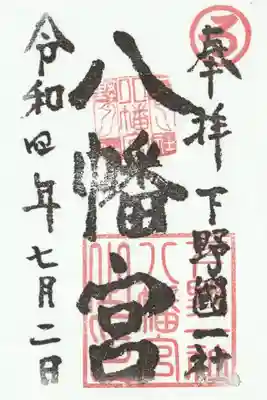 奉拝 下野國一社
八幡宮
令和四年七月二日